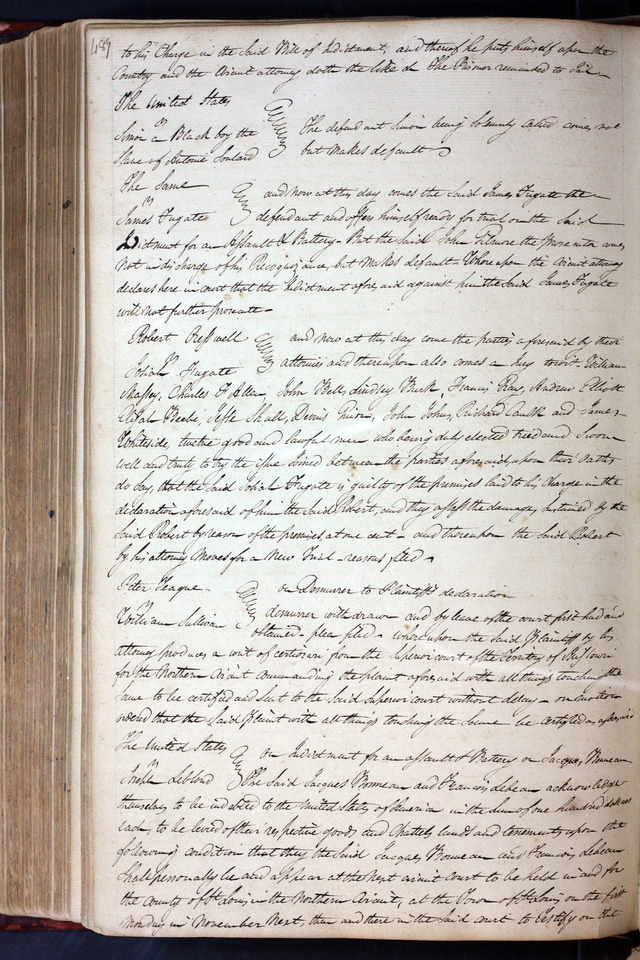 489
to his Charge in the Said Bill of Indictment, and thereof he puts himself upon the
Country and the Circuit attorney doth the like &c The Prisoner remanded to Jail
The United States
vs
Simon a Black boy the
Slave of Antoine Soulard
The defendant Simon being Solemnly called comes not
but makes default
The Same
vs
James Fugate
and now at this day comes the Said James Fugate the
defendant and offers himself ready for trial on the Said
Indictment for an Assault & Battery – But the Said John Filmore the Prosecutor comes
not in discharge of his Recognizance, but makes default – Whereupon the Circuit attorney
declares here in court that the Indictment aforesaid against him the Said James Fugate
will not further prosecute –
Robert
vs
Josiah Fugate
and now at this day come the parties aforesaid by their
attornies and thereupon also comes a Jury towit William
Massey, Charles F Allen, John Bell, Lindley Burk, Francis Ray, Andrew Elliott
Beebe, Jesse Shull, Dennis John Johns, Richard Caulk and James
Whiteside, twelve good and lawful men who being duly elected tried and Sworn
well and truly to try the issue joined between the parties aforesaid, upon their oaths
do say, that the Said Josiah Fugate is guilty of the premises laid to his Charge in the
declaration aforesaid of him the Said Robert, and they assess the damages sustained by the
Said Robert by reason of the premises, at one cent – and thereupon the Said Robert
by his attorney Moves for a New Trial – reasons filed –
Peter Teague
vs
William Sullivan
on Demurrer to Plaintiff's declaration
demurrer withdrawn and by leave of the court first had and
obtained – plea filed – whereupon the Said Plaintiff by his
attorney produces a writ of certiorari from the Superior court of the Territory of Missouri
for the Northern Circuit commanding the plaint aforesaid with all things touching the
Same to be certified and sent to the Said Superior court without delay – on motion
ordered that the Said Plaint with all things touching the Same be certified as aforesaid
The United States
vs
Joseph Leblond
on Indictment for an assault & Battery on Jacques Bonneau
The Said Jacques Bonneau and Francois Lebeau acknowledge
themselves to be indebted to the United States of America in the Sum of one hundred dollars
each, to be levied of their respective goods and Chattels lands and tenements, upon the
following condition that they the Said Jacques Bonneau and Francois Lebeau
Shall personally be and appear at the next circuit court to be held in and for
the County of St Louis in the Northern Circuit, at the Town of St Louis on the first
Monday in November Next, then and there in the Said court to testify on the